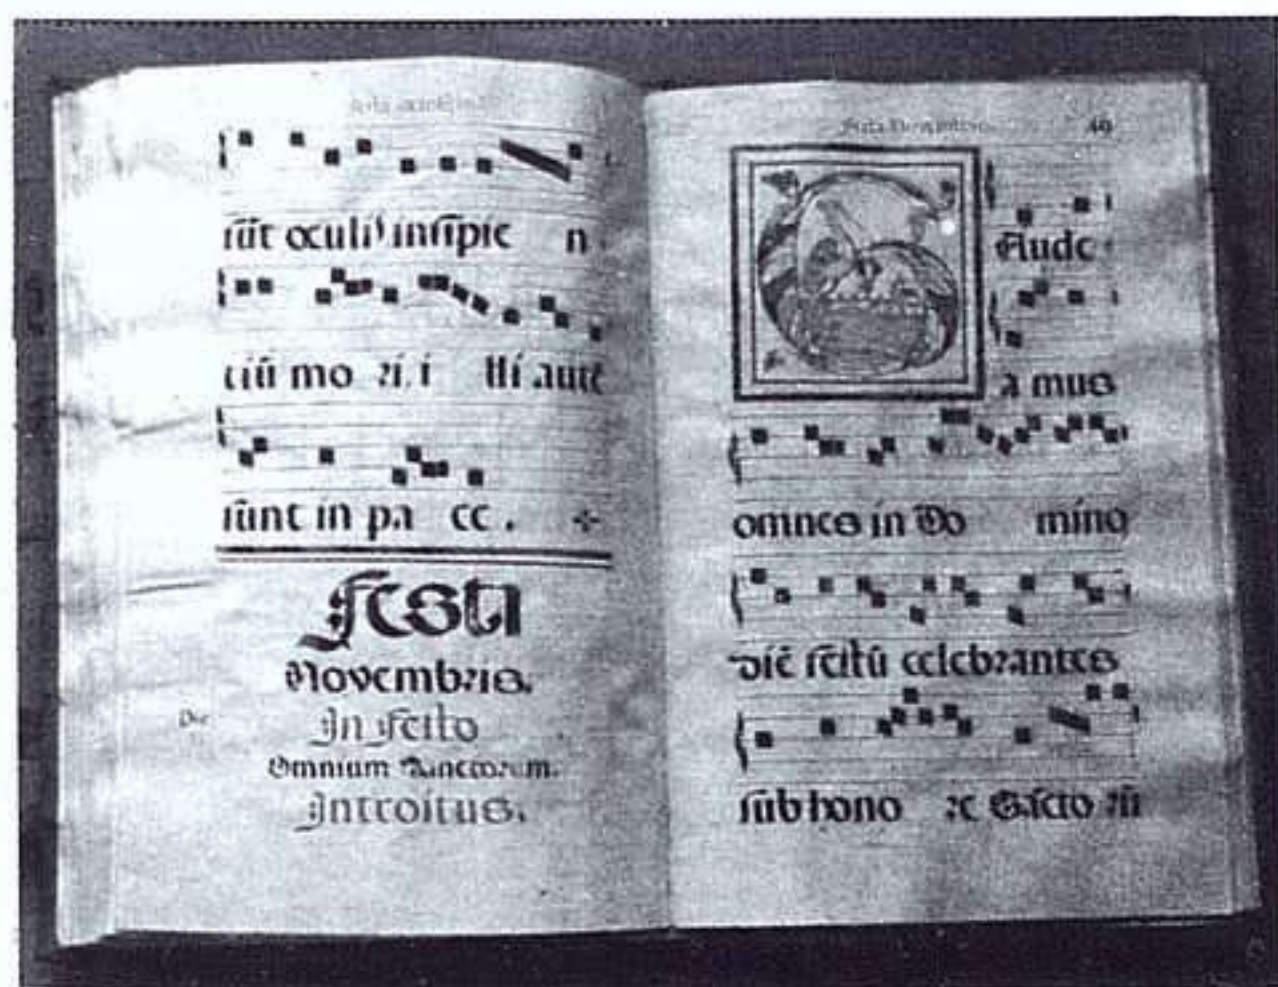 sūt oculis insipie n
tiū mo ri. i lli autē
sunt in pa ce.
Festa
Novembris.
In festo
Omnium Sanctorum.
Introitus.
Festa Novembris 49
GAude
a mus
omnes in Do mino
diē festū celebrantes
sub hono re Sāctorū